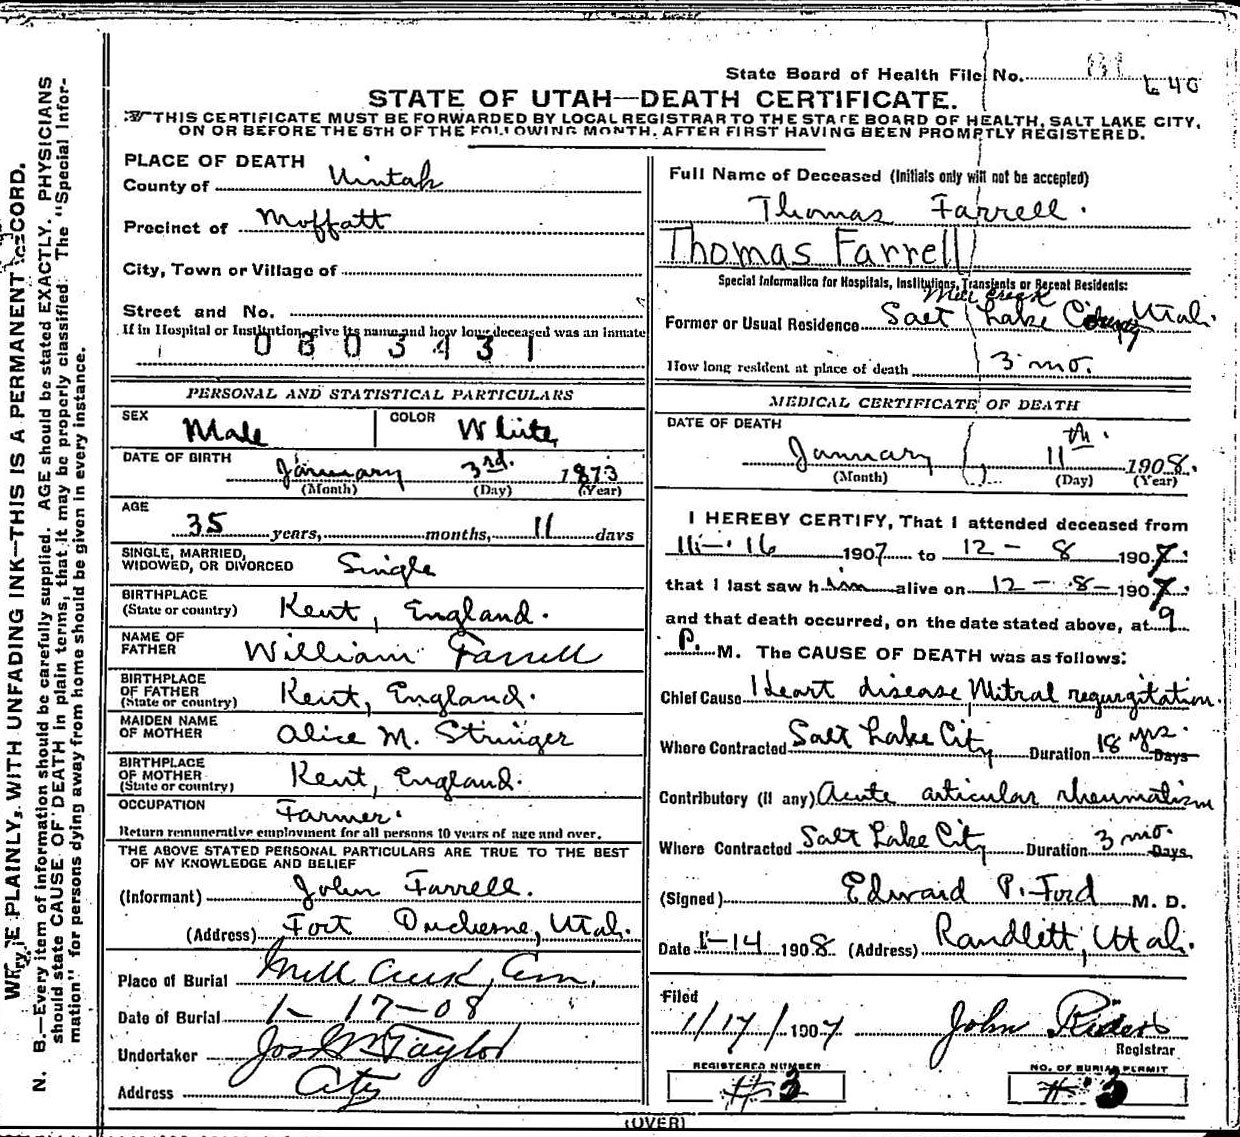 State Board of Health File No. 640
STATE OF UTAH—DEATH CERTIFICATE.
THIS CERTIFICATE MUST BE FORWARDED BY LOCAL REGISTRAR TO THE STATE BOARD OF HEALTH, SALT LAKE CITY,
ON OR BEFORE THE 5TH OF THE FOLLOWING MONTH, AFTER FIRST HAVING BEEN PROMPTLY REGISTERED.
PLACE OF DEATH
County of Uintah
Precinct of Moffatt
City, Town or Village of
Street and No.
If in Hospital or Institution, give its name and how long deceased was an inmate
0803431
PERSONAL AND STATISTICAL PARTICULARS
SEX Male COLOR White
DATE OF BIRTH January 3rd. 1873
(Month) (Day) (Year)
AGE
35 years, months, 11 days
SINGLE, MARRIED,
WIDOWED, OR DIVORCED Single
BIRTHPLACE
(State or country) Kent, England.
NAME OF
FATHER William Farrell
BIRTHPLACE
OF FATHER
(State or country) Kent, England.
MAIDEN NAME
OF MOTHER Alice M. Stringer
BIRTHPLACE
OF MOTHER
(State or country) Kent, England.
OCCUPATION Farmer.
Return remunerative employment for all persons 10 years of age and over.
THE ABOVE STATED PERSONAL PARTICULARS ARE TRUE TO THE BEST
OF MY KNOWLEDGE AND BELIEF
(Informant) John Farrell.
(Address) Fort Duchesne, Utah.
Place of Burial Mill Creek, Cem.
Date of Burial 1-17-08
Undertaker Jos Wm Taylor
Address City
Full Name of Deceased (Initials only will not be accepted)
Thomas Farrell.
Thomas Farrell
Special Information for Hospitals, Institutions, Transients or Recent Residents:
Mill Creek
Former or Usual Residence Salt Lake County Utah.
How long resident at place of death 3 mo.
MEDICAL CERTIFICATE OF DEATH
DATE OF DEATH
January 11th. 1908.
(Month) (Day) (Year)
I HEREBY CERTIFY, That I attended deceased from
11-16 1907 to 12-8 1907
that I last saw him alive on 12-8-1907
and that death occurred, on the date stated above, at 9
P. M. The CAUSE OF DEATH was as follows:
Chief Cause Heart disease Mitral regurgitation.
Where Contracted Salt Lake City Duration 18 yrs. Days
Contributory (if any) Acute articular rheumatism
Where Contracted Salt Lake City Duration 3 mo. Days
(Signed) Edward P. Ford M. D.
Date 1-14 1908 (Address) Randlett, Utah.
Filed
1/17/1907 John
Registrar
REGISTERED NUMBER
#3
NO. OF BURIAL PERMIT
#3
(OVER)
WRITE PLAINLY, WITH UNFADING INK—THIS IS A PERMANENT RECORD.
N. B.—Every item of information should be carefully supplied. AGE should be stated EXACTLY. PHYSICIANS
should state CAUSE OF DEATH in plain terms, that it may be properly classified. The "Special Infor-
mation" for persons dying away from home should be given in every instance.